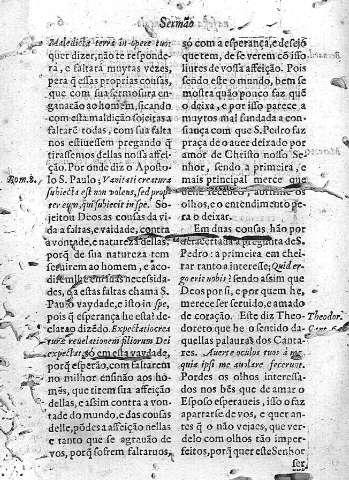 Sermão
Maledicta terra in opere tuo:
quer dizer, não te responde-
ra, e faltará muytas vezes,
pera q̃ essas proprias cousas,
que com sua fermosura en-
ganarão ao homẽ, ficando
com esta maldição sojeitas a
faltarẽ todas, com sua falta
nos estiuessem prègando q̃
tirassemos dellas nossa affei-
ção. Por onde diz o Aposto-
lo S. Paulo; Vanitati creatura
subiecta est non volens, sed prop-
ter eum, qui subiecit in spe. So-
jeitou Deos as cousas da vi-
da a faltar, e vaidade, contra
a vontade, e natureza dellas,
porq̃ de sua natureza tem
seruirem ao homem, e aco-
dirẽlhe em suas necessida-
des, e a estas faltas chama S.
Paulo vaydade, e isto in spe,
pois q̃ esperança he esta? de-
clarao dizẽdo. Expectatio crea-
turæ reuelationem filiorum Dei
expectat, só em esta vaydade,
porq̃ esperão, com faltarem
no milhor ensinão aos ho-
mẽs, que tirem sua affeição
dellas, e assim contra a von-
tade do mundo, e das cousas
delle, põdes a affeição nellas
e tanto que se agrauão de
vos, porq̃ fosrem faltaruos,
Rom.8.
só com a esperança, e desejo
que tem, de se verem cõ isso
liures de vossa affeição. Pois
sendo este o mundo, bem se
mostra quão pouco faz quẽ
o deixa, e por isso parece a
muytos mal fundada a con-
fiança com que S. Pedro faz
praça de o auer deixado por
amor de Christo nosso Se-
nhor, sendo a primeira, e
mais principal merce que
delle recebeo, abrirme os
olhos, e o entendimento pe-
ra o deixar.
Em duas cousas hão por
desacertada a pregunta de S.
Pedro: a primeira em chei-
rar tanto a interesse; Quid er-
go erit nobis? sendo assim que
Deos por si, e por quem he,
merece ser seruido, e amado
de coração. Este diz Theo-
doreto que he o sentido da-
quellas palauras dos Canta-
res. Auerte oculus tuos à me
quia ipsi me auolare fecerunt.
Pordes os olhos interessa-
dos nos bẽs que de amar o
Esposo esperaueis, isso o faz
apartarse de vos, e quer an-
tes q̃ o não vejaes, que ver-
delo com olhos tão imper-
feitos, porq̃ quer este Senhor
ser
Theodor.